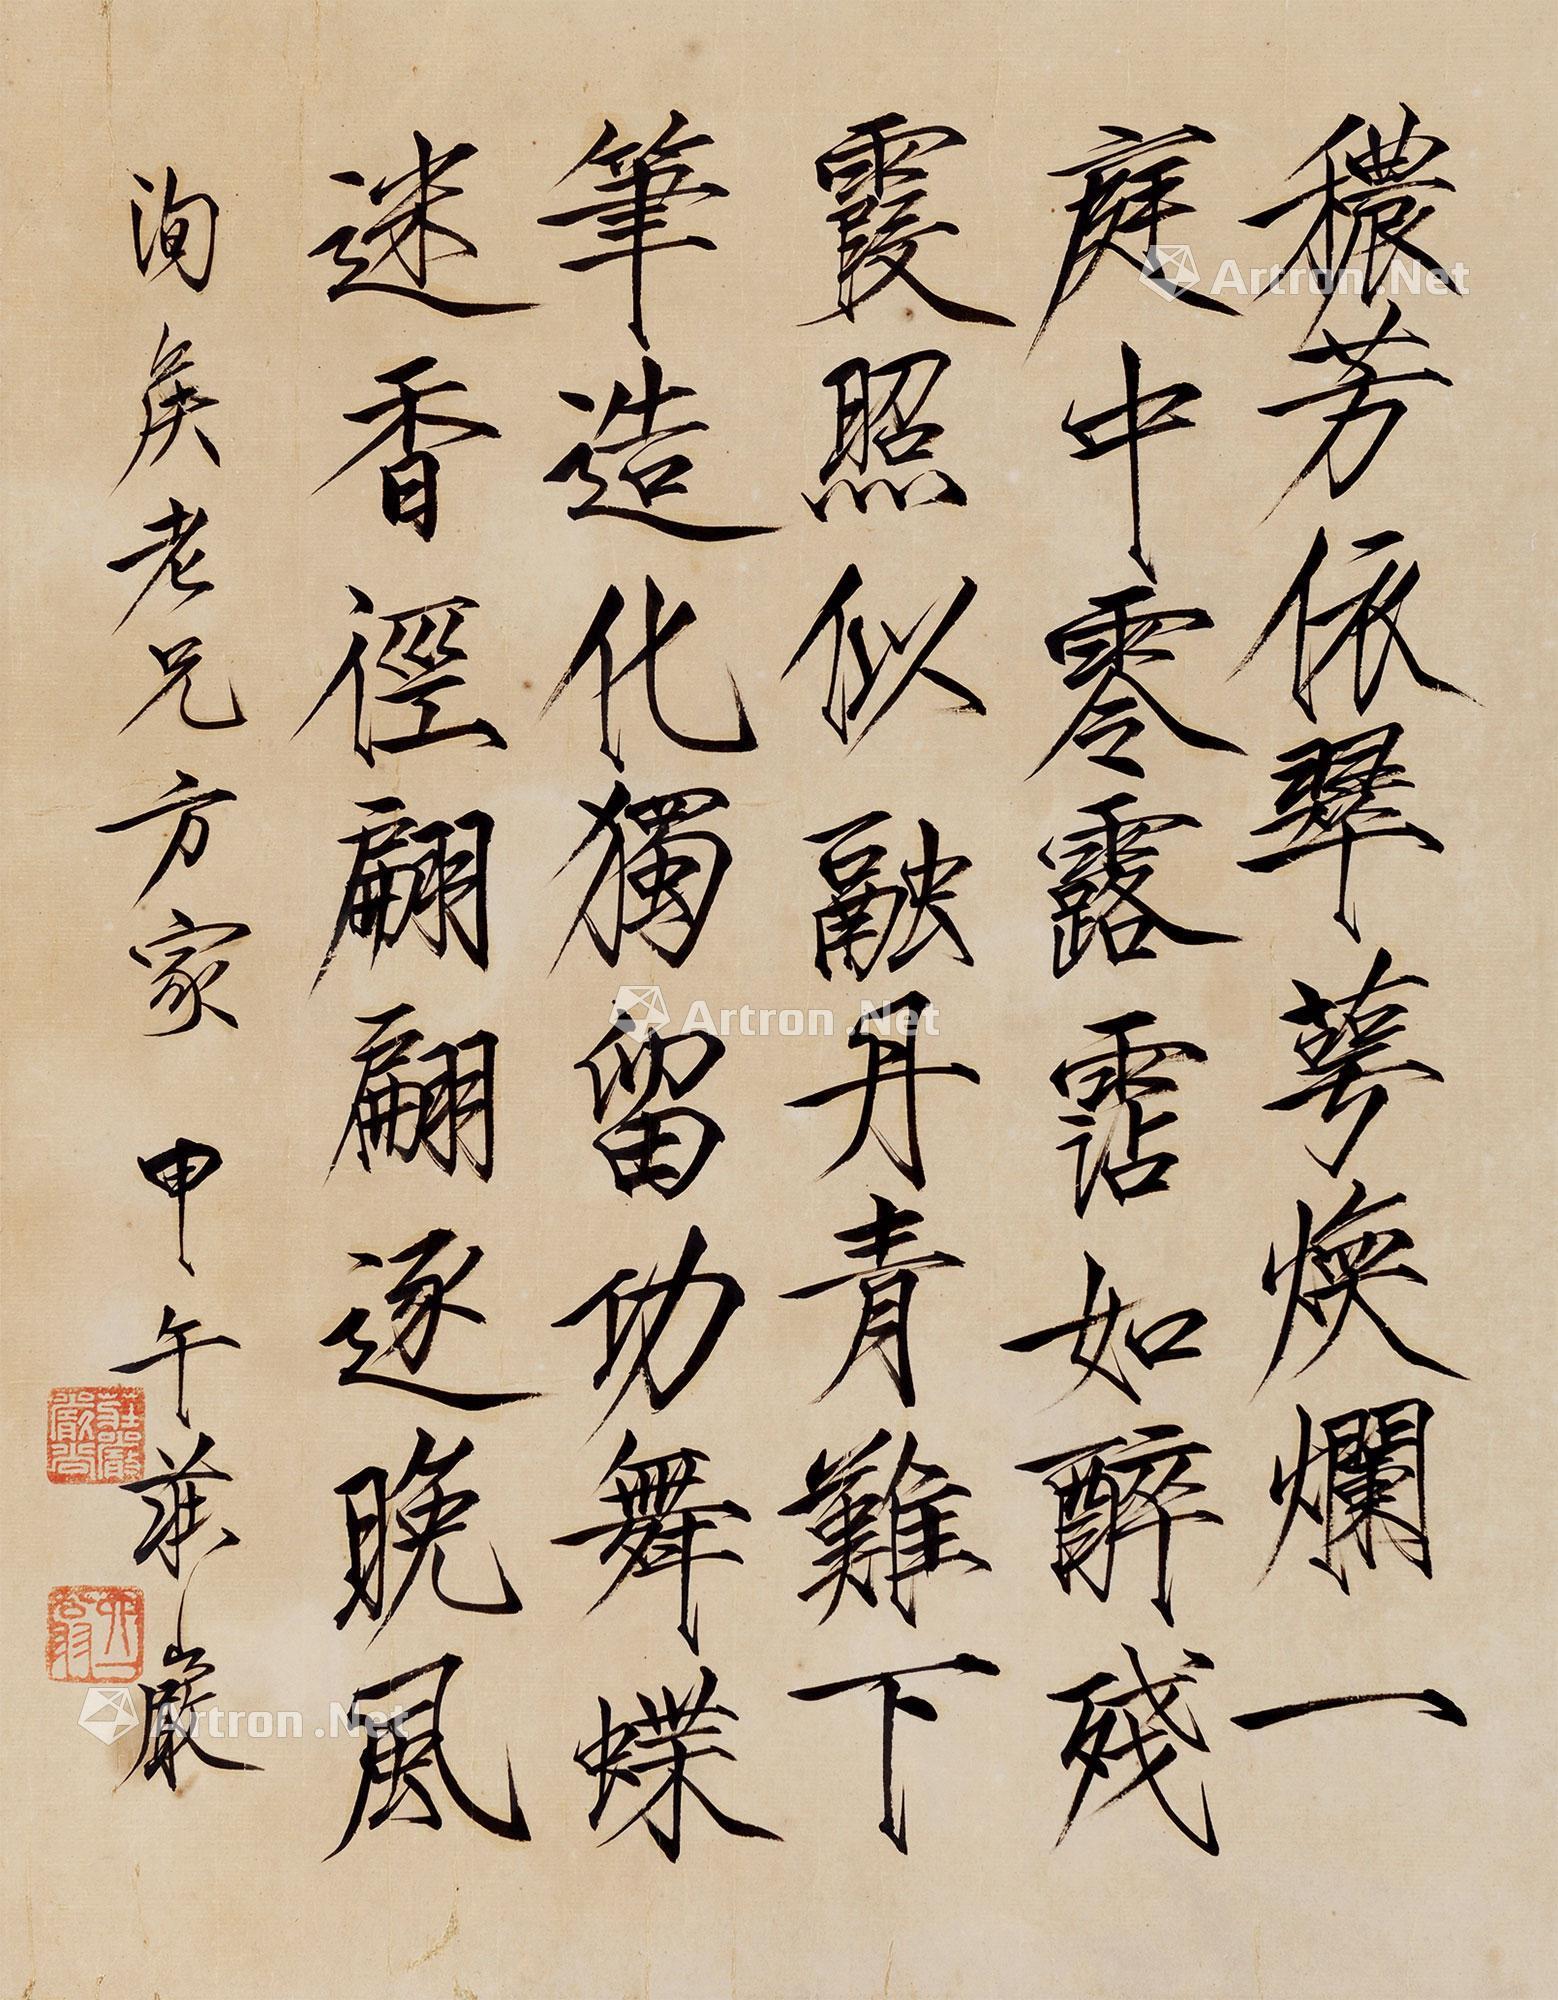 穠芳依翠萼煥爛一
庭中零露霑如醉殘
霞照似融丹青難下
筆造化獨留功舞蝶
迷香徑翩翩逐晚風
洵矦老兄方家 甲午莊嚴
Artron.Net
Artron.Net
Artron.Net